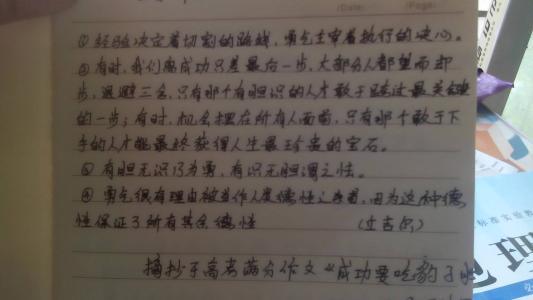 /Date: /Page:
① 经验决定着切割的路线，勇气主宰着执行的决心。
② 有时，我们离成功只差最后一步，大部分人都望而却
步，退避三舍，只有那个有胆识的人才敢于踏过最关键
的一步；有时，机会摆在所有人面前，只有那个敢于下
手的人才能最终获得人生最珍贵的宝石。
③ 有胆无识乃为勇，有识无胆谓之怯。
④ 勇气很有理由被当作人类德性之首，因为这种德
性保证了所有其余德性 (丘吉尔)
摘抄于高考满分作文《成功要吃豹子胆
标准实验教
理